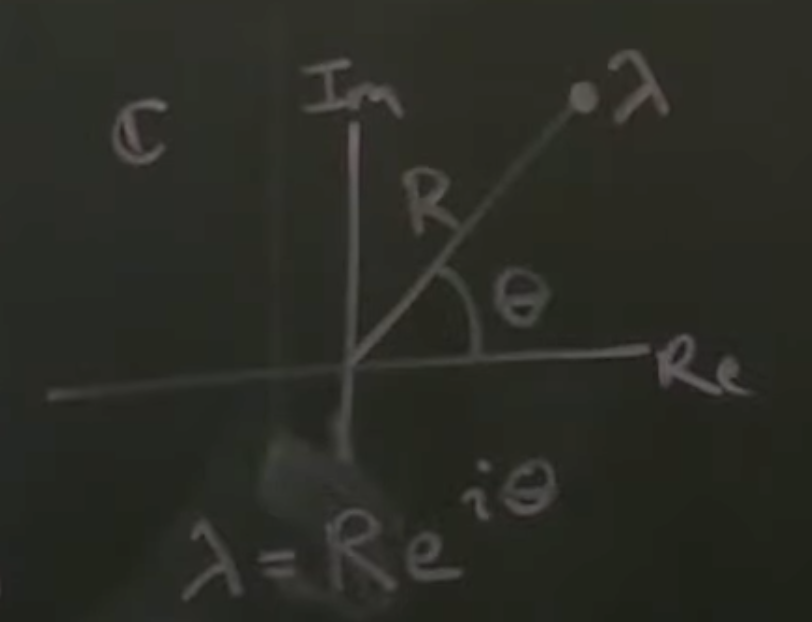 Im
λ
ℂ
R
θ
Re
λ = Re^{iθ}